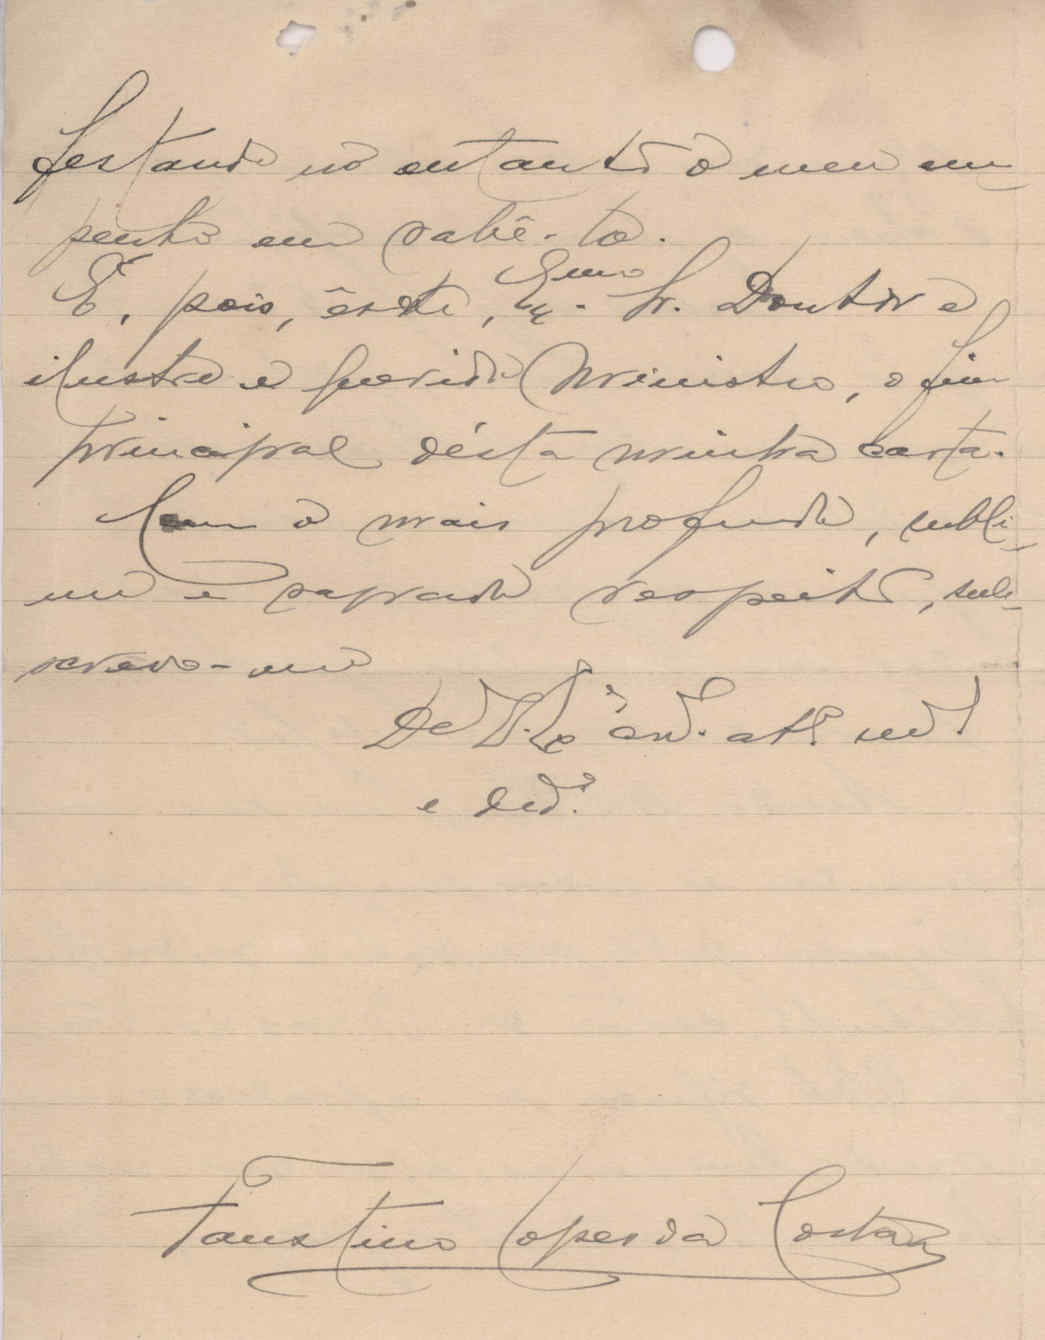 festando no entanto o meu em-
penho em sabê-lo.
É, pois, êste, Exmo Sr. Doutor e
ilustre e querido Ministro, o fim
principal désta minha carta.
Com o mais profundo, subli-
me e sagrado respeito, subs-
crevo-me
De V. Exª
e ded.º
Faustino Lopes da Costa